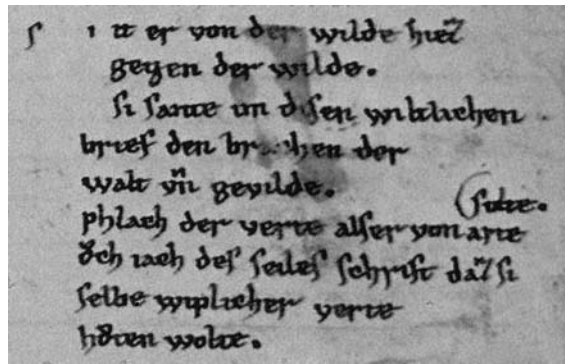 ſ i tt er von der wilde hiez
gegen der wilde.
ſi ſante im diſen wiltlichen
brief den brachen der
walt vn̄ gevilde.
(ſolte.
phlach der verte alſer von arte
oͮch iach deſ ſeileſ ſchrift daz ſi
ſelbe wiplicher verte
hoͮten wolte.